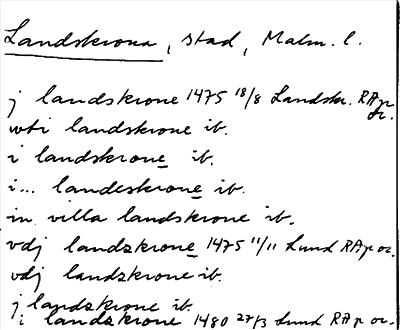 Landskrona, stad, Malm. l.
j landskrone 1475 18/8 Landskr. RAp or.
wti landskrone ib.
i landskrone ib.
i... landeskrone ib.
in villa landskrone ib.
vdj landzkrone 1475 11/11 Lund RAp or.
vdj landzkrone ib.
j landzkrone ib.
i landzkrone 1480 27/3 Lund RAp or.